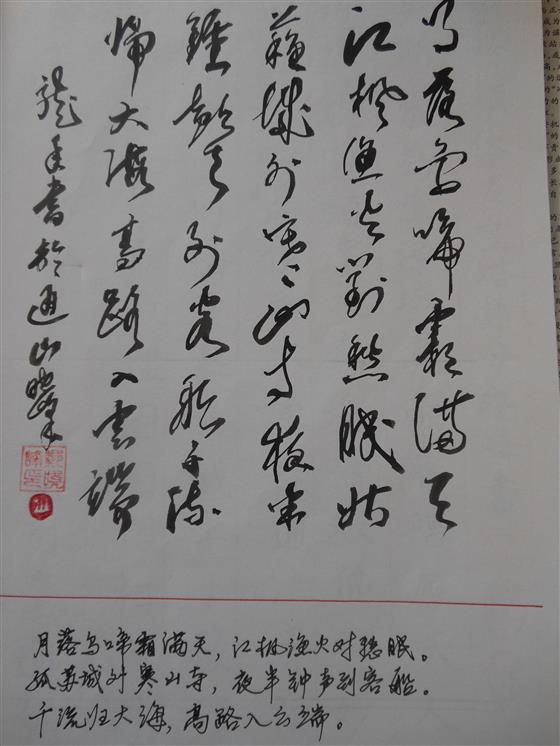 月落烏啼霜滿天
江楓漁火對愁眠姑
蘇城外寒山寺夜半
鐘聲到客船千流
歸大海高路入雲端
龍年書於通山
月落乌啼霜满天，江枫渔火对愁眠。
孤苏城外寒山寺，夜半钟声到客船。
千流归大海，高路入云端。